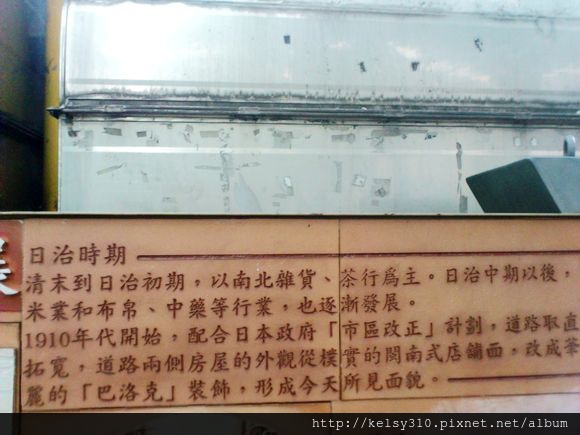 日治時期
清末到日治初期，以南北雜貨、茶行為主。日治中期以後，
米業和布帛、中藥等行業，也逐漸發展。
1910年代開始，配合日本政府「市區改正」計劃，道路取直
拓寬，道路兩側房屋的外觀從樸實的閩南式店舖面，改成華
麗的「巴洛克」裝飾，形成今天所見面貌。
http://kelsy310.pixnet.net/album